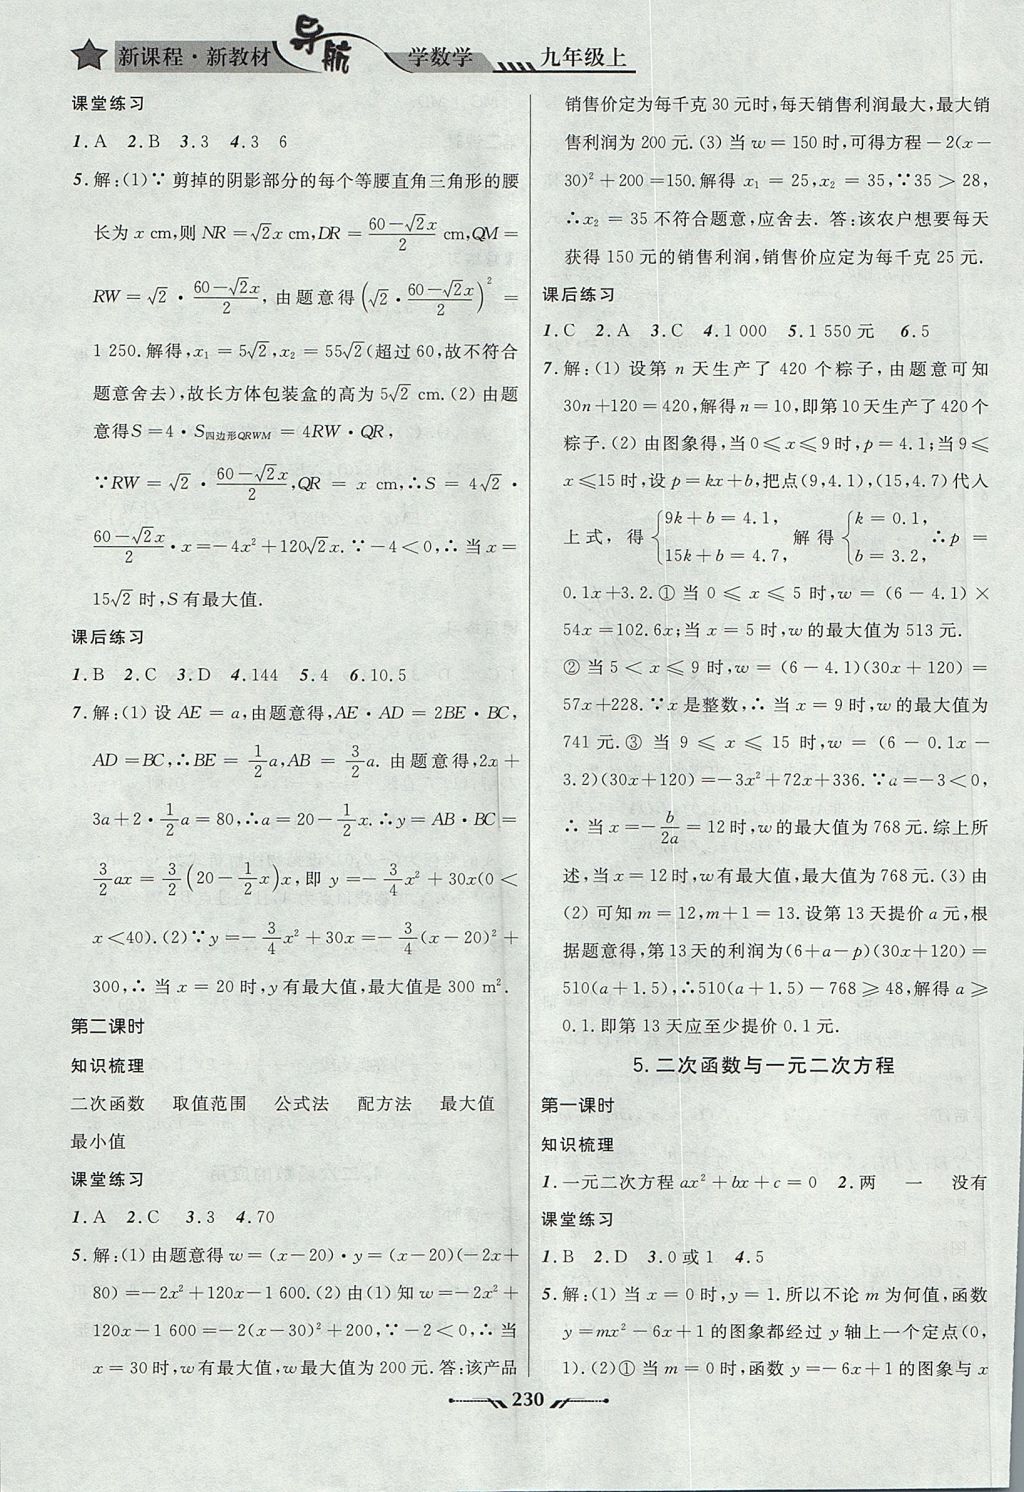 新课程·新教材 导航 学数学 九年级上
课堂练习
1. A 2. B 3. 3 4. 3 6
5. 解:(1)∵ 剪掉的阴影部分的每个等腰直角三角形的腰
长为 x cm,则 NR=√2x cm,DR=(60-√2x)/2 cm,QM=
RW=√2·(60-√2x)/2, 由题意得(√2·(60-√2x)/2)²=
1 250.解得,x₁=5√2,x₂=55√2(超过 60,故不符合
题意舍去),故长方体包装盒的高为 5√2 cm.(2) 由题
意得S=4·S四边形QRWM=4RW·QR,
∵RW=√2·(60-√2x)/2,QR=x cm,∴S=4√2·
(60-√2x)/2·x=-4x²+120√2x.∵-4<0,∴当 x=
15√2 时,S 有最大值.
课后练习
1. B 2. C 3. D 4. 144 5. 4 6. 10.5
7. 解:(1) 设 AE=a,由题意得,AE·AD=2BE·BC,
AD=BC,∴BE=1/2a,AB=3/2a. 由题意得,2x+
3a+2·1/2a=80,∴a=20-1/2x.∴y=AB·BC=
3/2ax=3/2(20-1/2x)x,即 y=-3/4x²+30x(0<
x<40).(2)∵y=-3/4x²+30x=-3/4(x-20)²+
300,∴当 x=20 时,y 有最大值,最大值是 300 m².
第二课时
知识梳理
二次函数 取值范围 公式法 配方法 最大值
最小值
课堂练习
1. A 2. C 3. 3 4. 70
5. 解:(1) 由题意得 w=(x-20)·y=(x-20)(-2x+
80)=-2x²+120x-1 600.(2) 由(1) 知 w=-2x²+
120x-1 600=-2(x-30)²+200,∵-2<0,∴当
x=30 时,w 有最大值,w 最大值为 200 元. 答:该产品
销售价定为每千克 30 元时,每天销售利润最大,最大销
售利润为 200 元.(3) 当 w=150 时,可得方程-2(x-
30)²+200=150.解得 x₁=25,x₂=35,∵35>28,
∴x₂=35 不符合题意,应舍去. 答:该农户想要每天
获得 150 元的销售利润,销售价应定为每千克 25 元.
课后练习
1. C 2. A 3. C 4. 1 000 5. 1 550 元 6. 5
7. 解:(1) 设第 n 天生产了 420 个粽子,由题意可知
30n+120=420,解得 n=10,即第 10 天生产了 420 个
粽子.(2) 由图象得,当 0≤x≤9 时,p=4.1;当 9≤
x≤15 时,设 p=kx+b,把点(9,4.1),(15,4.7)代入
上式,得{9k+b=4.1, 15k+b=4.7, 解得{k=0.1, b=3.2, ∴p=
0.1x+3.2.① 当 0≤x≤5 时,w=(6-4.1)×
54x=102.6x;当 x=5 时,w 的最大值为 513 元.
② 当 5<x≤9 时,w=(6-4.1)(30x+120)=
57x+228.∵x 是整数,∴当 x=9 时,w 的最大值为
741 元.③ 当 9≤x≤15 时,w=(6-0.1x-
3.2)(30x+120)=-3x²+72x+336.∵a=-3<0,
∴当 x=-b/2a=12 时,w 的最大值为 768 元.综上所
述,当 x=12 时,w 有最大值,最大值为 768 元.(3) 由
(2) 可知 m=12,m+1=13.设第 13 天提价 a 元,根
据题意得,第 13 天的利润为(6+a-p)(30x+120)=
510(a+1.5),∴510(a+1.5)-768≥48,解得 a≥
0.1.即第 13 天应至少提价 0.1 元.
5. 二次函数与一元二次方程
第一课时
知识梳理
1. 一元二次方程 ax²+bx+c=0 2. 两 一 没有
课堂练习
1. B 2. D 3. 0 或 1 4. 5
5. 解:(1) 当 x=0 时,y=1. 所以不论 m 为何值,函数
y=mx²-6x+1 的图象都经过 y 轴上一个定点(0,
1).(2)① 当 m=0 时,函数 y=-6x+1 的图象与 x
230